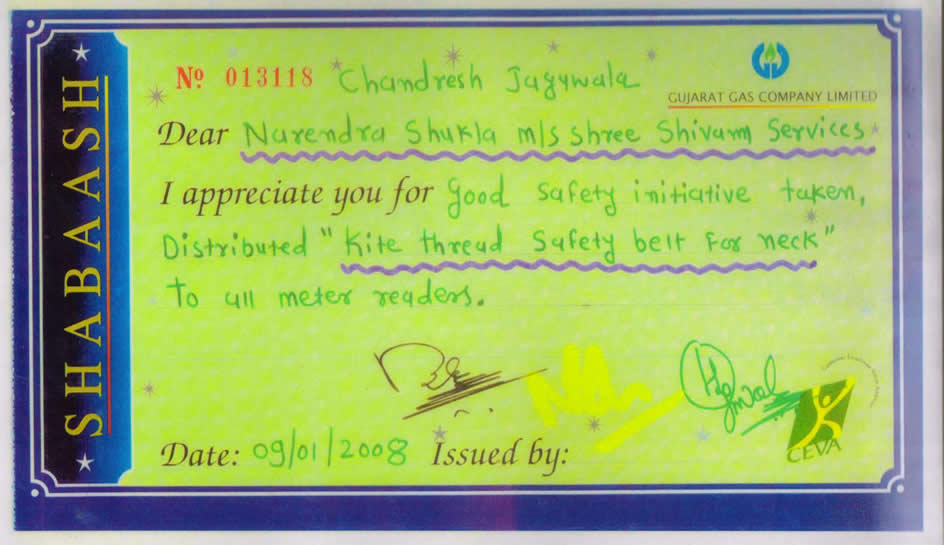 SHABAASH
№ 013118 Chandresh Jagywala
GUJARAT GAS COMPANY LIMITED
Dear Narendra Shukla m/s shree Shivam Services
I appreciate you for good safety initiative taken,
Distributed "Kite thread Safety belt For neck"
To all meter readers.
Date: 09/01/2008 Issued by:
CEVA